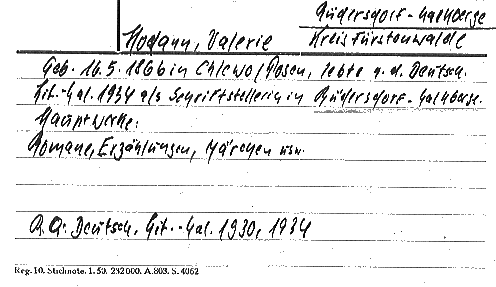 Rüdersdorf-Kalkberge
Hodann, Valerie Kreis Fürstenwalde
Geb. 16.5.1866 in Chlewo/Posen, lebte n. d. Deutsch.
Lit.-Kal. 1934 als Schriftstellerin in Rüdersdorf-Kalkberge.
Hauptwerke:
Romane, Erzählungen, Märchen usw.
R.A: Deutsch. Lit.-Kal. 1930, 1934
Reg. 10. Stichnote. 1. 50. 232000. A.803. S. 4062